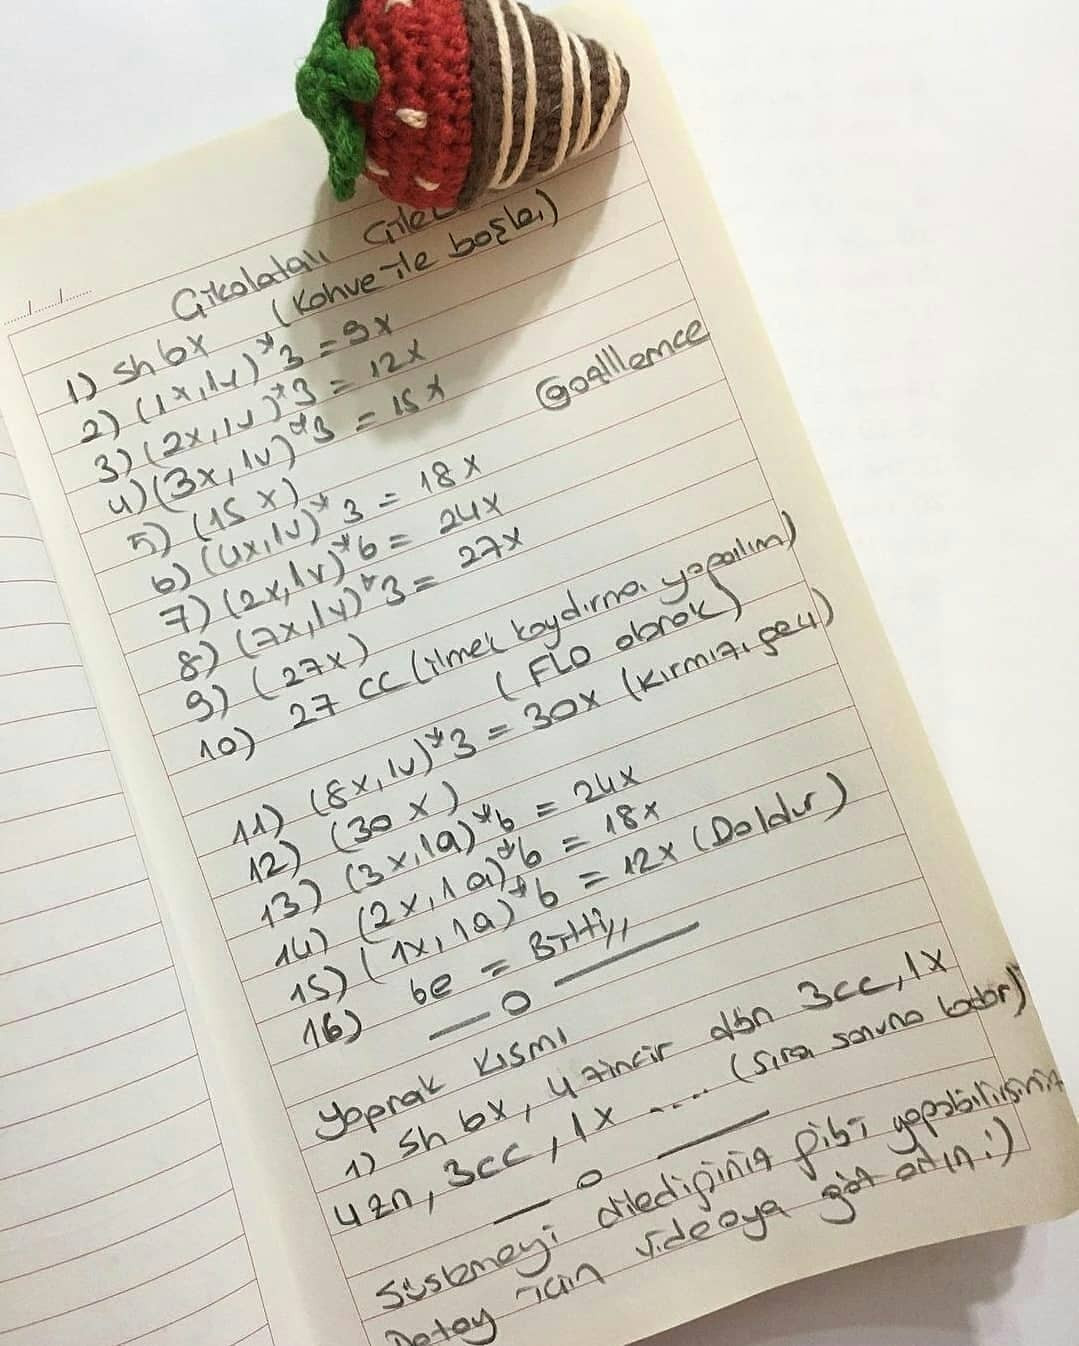 Çikolatalı Çilek
(Kahve ile başla)
1) Sh 6x
2) (1x,1v)*3 = 9x
3) (2x,1v)*3 = 12x
4) (3x,1v)*3 = 15x
@gozdlemce
5) (15x)
6) (4x,1v)*3 = 18x
7) (2x,1v)*6 = 24x
8) (7x,1v)*3 = 27x
9) (27x)
10) 27 CC (ilmek kaydırma yapalım)
( FLO olarak)
11) (8x,1v)*3 = 30x (kırmızı geç)
12) (30x)
13) (3x,1a)*6 = 24x
14) (2x,1a)*6 = 18x
15) (1x,1a)*6 = 12x (Doldur)
16) 6e = Bitti,,
Yaprak Kısmı
1) Sh 6x, 4 zincir dön 3cc, 1x
4zn, 3cc, 1x .... (sıra sonuna kadar)
Süslemeyi dilediğiniz gibi yapabilirsiniz
Detay için videoya göz atın :)